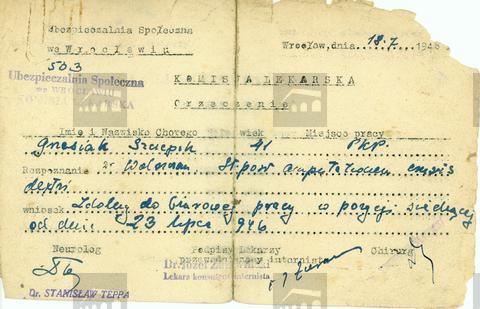 Ubezpieczalnia Społeczna
we Wrocławiu
Wrocław, dnia 18.7. 1946
503
Ubezpieczalnia Społeczna
we WROCŁAWIU
KOMISJA LEKARSKA
KOMISJA LEKARSKA
Orzeczenie
Imię i Nazwisko Chorego wiek Miejsce pracy
Szczepan 41 PKP.
Rozpoznanie St. post
wniosek Zdolny do biurowej pracy w pozycji siedzącej
od dnia 23 lipca 946
Neurolog Podpisy Lekarzy Chirurg
przewodniczący internista
Dr. Józef
Lekarz konsult internista
Dr. STANISŁAW TEPPA